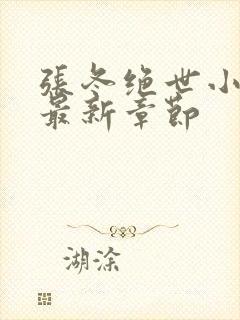 張冬绝世小
最新章節
湖涂